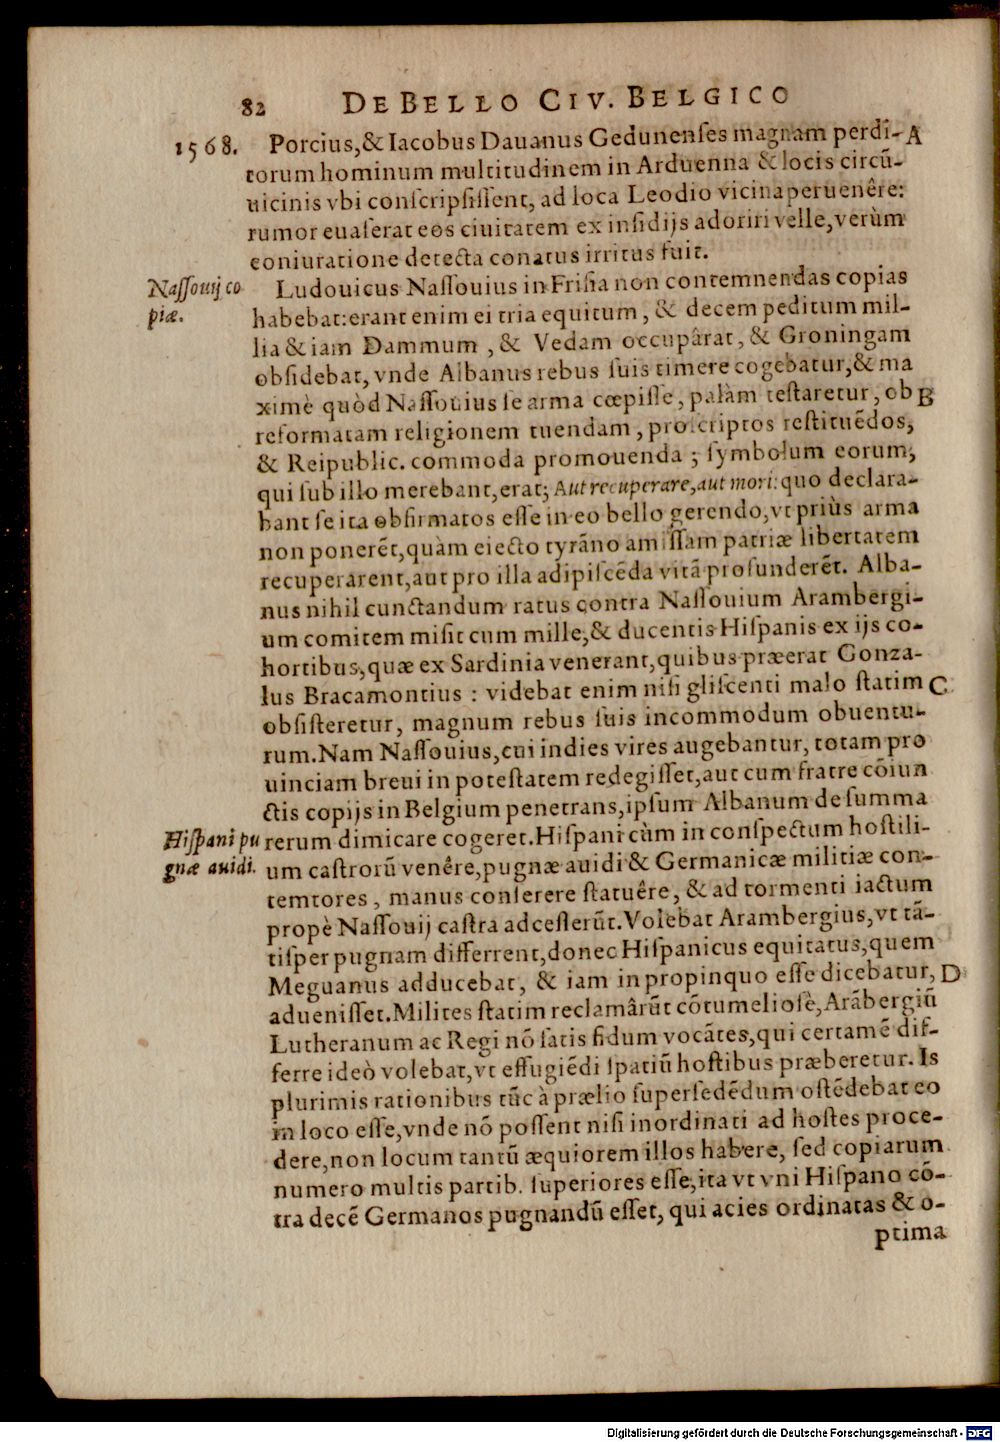 82 DE BELLO CIV. BELGICO
1568. Porcius,& Iacobus Dauanus Gedunenſes magnam perdi- A
torum hominum multitudinem in Arduenna & locis circũ-
uicinis vbi conſcripſiſſent, ad loca Leodio vicina peruenêre:
rumor euaſerat eos ciuitatem ex inſidijs adoriri velle, verùm
coniuratione detecta conatus irritus fuit.
Naſſouij co
piæ.
Ludouicus Naſſouius in Friſia non contemnendas copias
habebat: erant enim ei tria equitum, & decem peditum mil-
lia & iam Dammum, & Vedam occupârat, & Groningam
obſidebat, vnde Albanus rebus ſuis timere cogebatur,& ma
ximè quòd Naſſouius ſe arma cœpiſſe, palàm teſtaretur, ob B
reformatam religionem tuendam, proſcriptos reſtituẽdos,
& Reipublic. commoda promouenda; ſymbolum eorum,
qui ſub illo merebant, erat; Aut recuperare, aut mori: quo declara-
bant ſe ita obfirmatos eſſe in eo bello gerendo, vt priùs arma
non ponerẽt, quàm eiecto tyrãno amiſſam patriæ libertatem
recuperarent, aut pro illa adipiſcẽda vitã profunderẽt. Alba-
nus nihil cunctandum ratus contra Naſſouium Arambergi-
um comitem miſit cum mille,& ducentis Hiſpanis ex ijs co-
hortibus, quæ ex Sardinia venerant, quibus præerat Gonza-
lus Bracamontius : videbat enim niſi gliſcenti malo ſtatim C
obſiſteretur, magnum rebus ſuis incommodum obuentu-
rum. Nam Naſſouius, cui indies vires augebantur, totam pro
uinciam breui in poteſtatem redegiſſet, aut cum fratre cõiun
ctis copijs in Belgium penetrans, ipſum Albanum de ſumma
Hiſpani pu
gnæ auidi.
rerum dimicare cogeret. Hiſpani cùm in conſpectum hoſtili-
um caſtrorũ venêre, pugnæ auidi & Germanicæ militiæ con-
temtores, manus conſerere ſtatuêre, & ad tormenti iactum
propè Naſſouij caſtra adceſſerũt. Volebat Arambergius, vt tã-
tiſper pugnam differrent, donec Hiſpanicus equitatus, quem
Meguanus adducebat, & iam in propinquo eſſe dicebatur, D
adueniſſet. Milites ſtatim reclamârũt cõtumelioſè, Arãbergiũ
Lutheranum ac Regi nõ ſatis fidum vocãtes, qui certamẽ dif-
ferre ideò volebat, vt effugiẽdi ſpatiũ hoſtibus præberetur. Is
plurimis rationibus tũc à prælio ſuperſedẽdum oſtẽdebat eo
in loco eſſe, vnde nõ poſſent niſi inordinati ad hoſtes proce-
dere, non locum tantũ æquiorem illos habere, ſed copiarum
numero multis partib. ſuperiores eſſe, ita vt vni Hiſpano cõ-
tra decẽ Germanos pugnandũ eſſet, qui acies ordinatas & o-
ptima
Digitalisierung gefördert durch die Deutsche Forschungsgemeinschaft - DFG